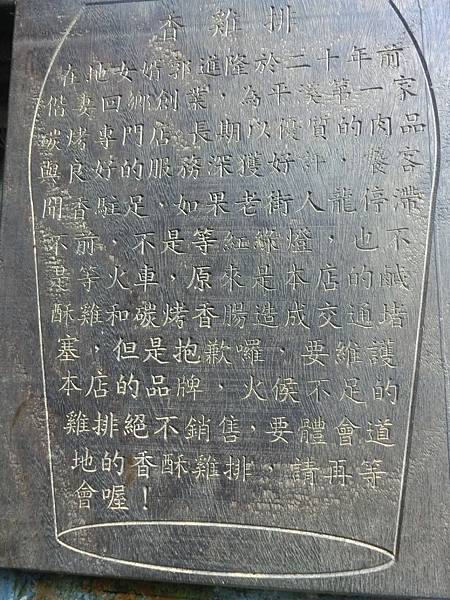 香雞排
在地女婿郭進隆於二十年前
偕妻回鄉創業，為平溪第一家
碳烤專門店，長期以優質的肉品
與良好的服務深獲好評，饕客
聞香駐足，如果老街人龍停滯
不前，不是等紅綠燈，也不
是等火車，原來是本店的鹹
酥雞和碳烤香腸造成交通堵
塞，但是抱歉囉，要維護
本店的品牌，火侯不足的
雞排絕不銷售，要體會道
地的香酥雞排，請再等
會喔！